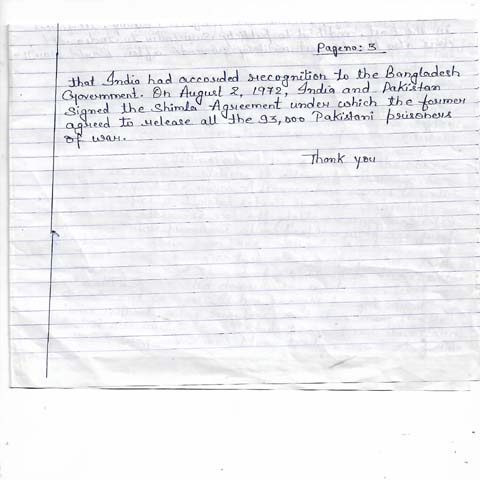 Page no: 3
that India had accorded recognition to the Bangladesh
Government. On August 2, 1972, India and Pakistan
signed the Shimla Agreement under which the former
agreed to release all the 93,000 Pakistani prisoners
of war.
Thank you